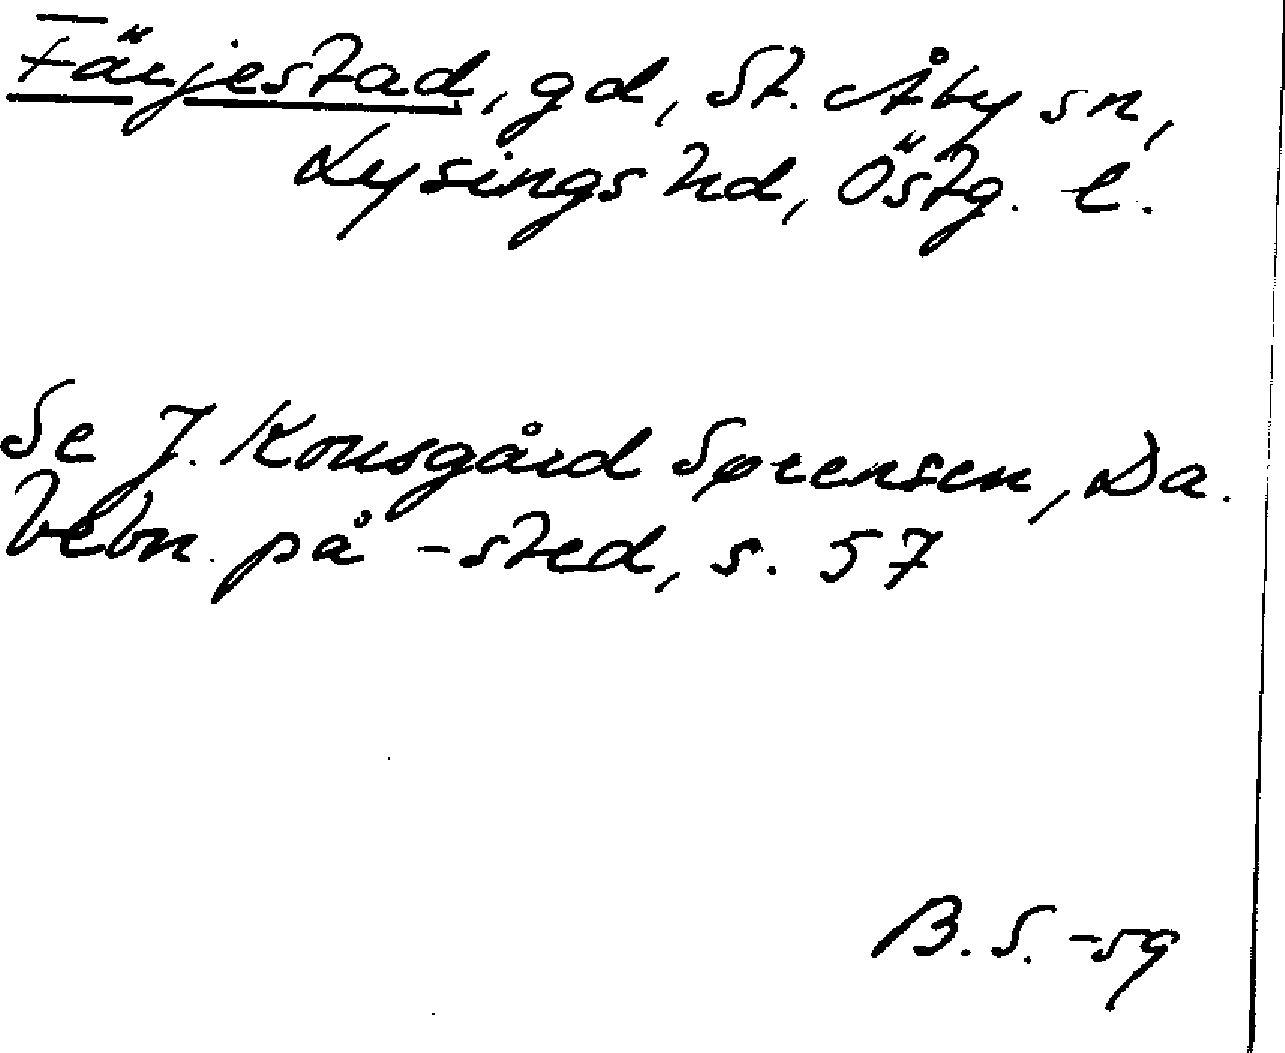 Färjestad, gd, St. Åby sn,
Lysings hd, Östg. l.
Se J. Kousgård Sørensen, Da.
bebn. på -sted, s. 57
B. S. -59